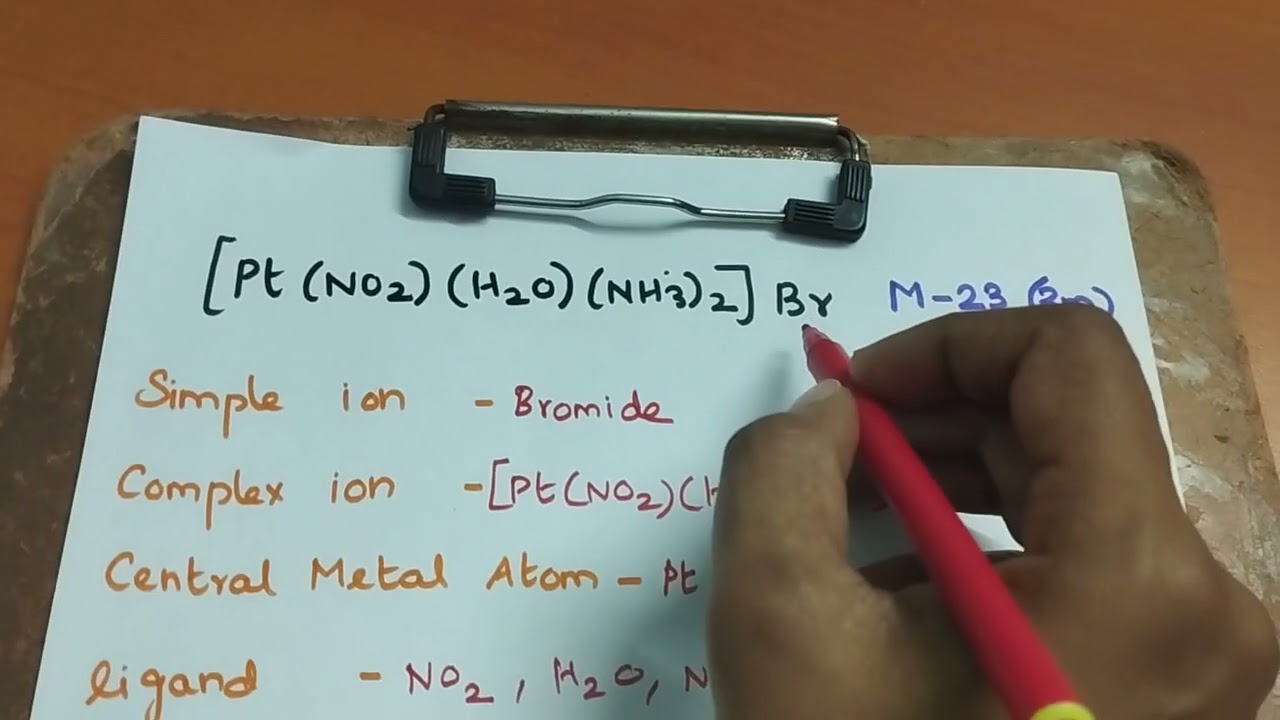 [Pt (NO2) (H2O) (NH3)2] Br M-23 (2m)
Simple ion - Bromide
Complex ion -[Pt(NO2)(H
Central Metal Atom - Pt
ligand - NO2, H2O, N